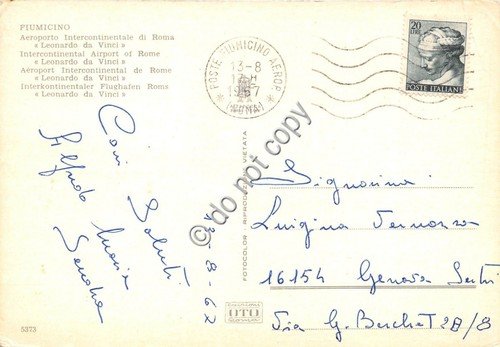 FIUMICINO
Aeroporto Intercontinentale di Roma
« Leonardo da Vinci »
Intercontinental Airport of Rome
« Leonardo da Vinci »
Aéroport Intercontinental de Rome
« Leonardo da Vinci »
Interkontinentaler Flughafen Roms
« Leonardo da Vinci »
POSTE FIUMICINO AEROP.
13-8
1967
(ROMA)
20
LIRE
POSTE ITALIANE
do not copy
Cari Saluti
Alfredo Maria
Sandra
13-8-67
FOTOCOLOR - RIPRODUZIONE VIETATA
OTO
Signorina
Luigina
16154 Genova Sestri
Via G. Berchet 28/8
5373